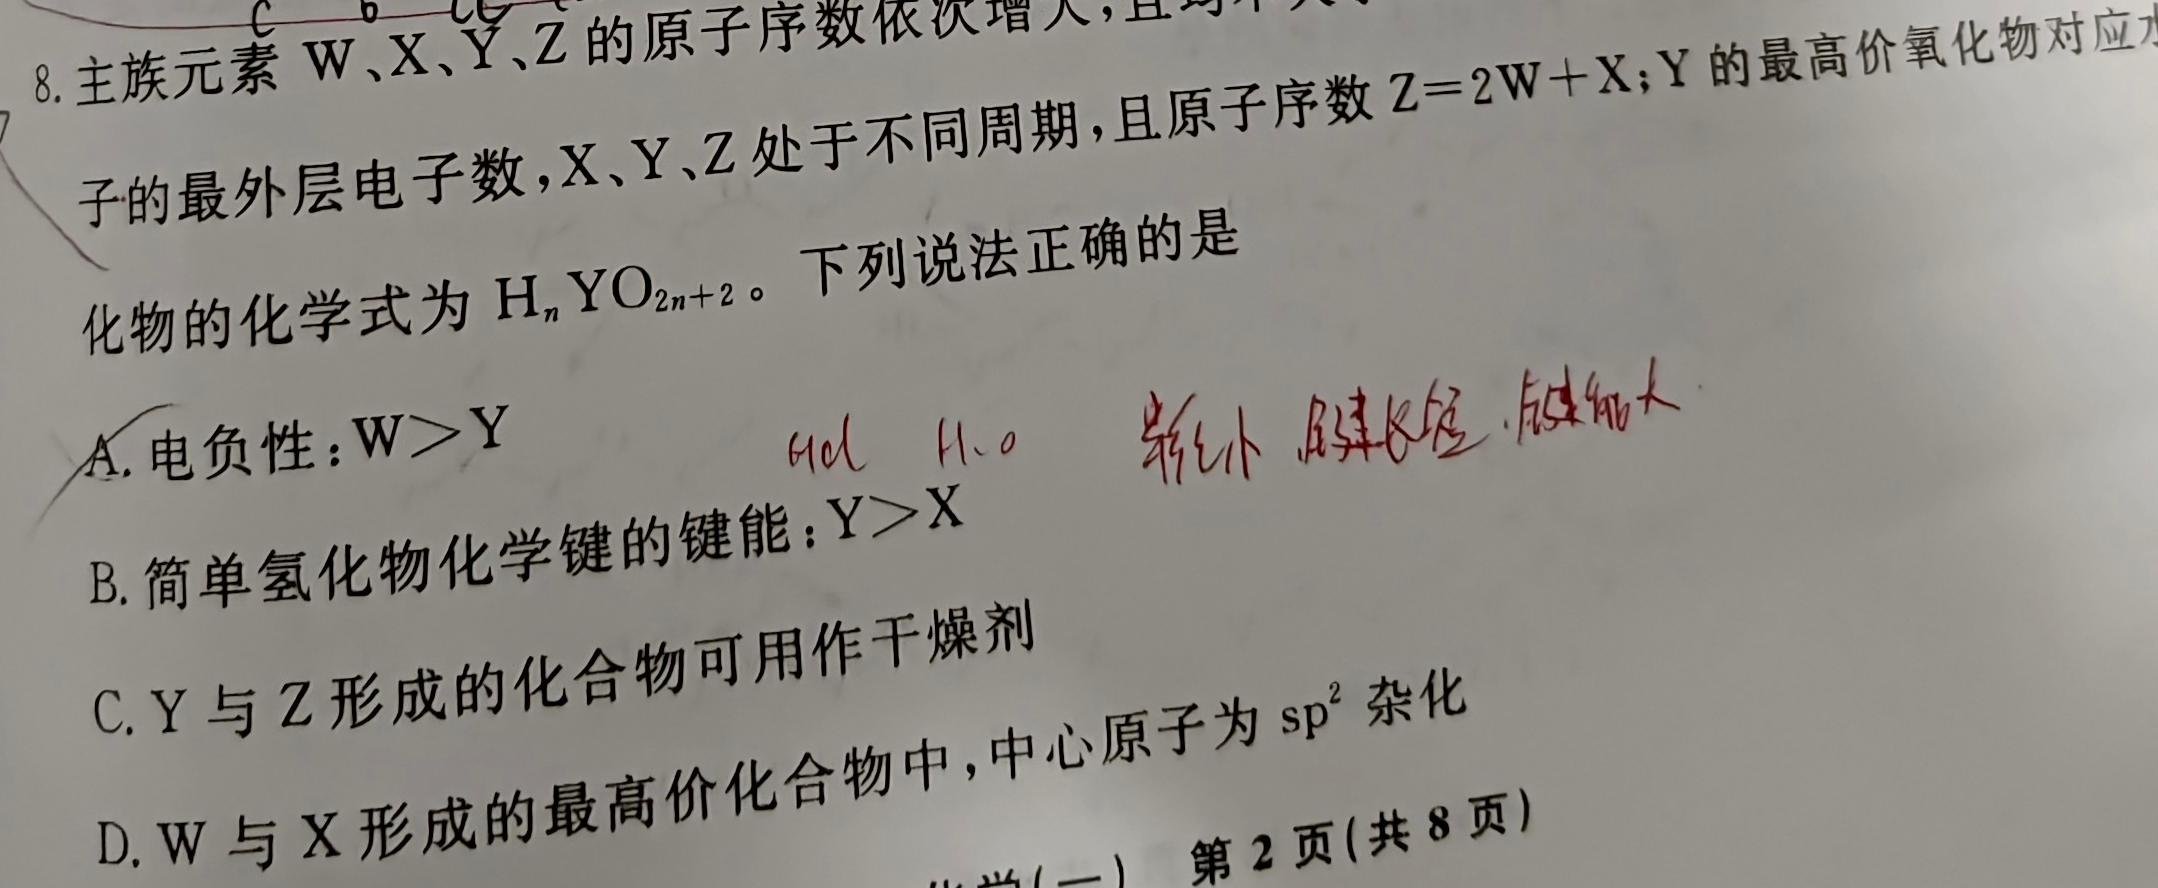 C
8.主族元素 W、X、Y、Z 的原子序数依次增大,且均不大
子的最外层电子数,X、Y、Z 处于不同周期,且原子序数 Z=2W+X;Y 的最高价氧化物对应水
化物的化学式为 HₙYO₂ₙ₊₂。下列说法正确的是
A.电负性:W>Y
HCl H₂O 键长短.键能大
B.简单氢化物化学键的键能:Y>X
C.Y 与 Z 形成的化合物可用作干燥剂
D.W 与 X 形成的最高价化合物中,中心原子为 sp² 杂化
化学(一) 第 2 页(共 8 页)